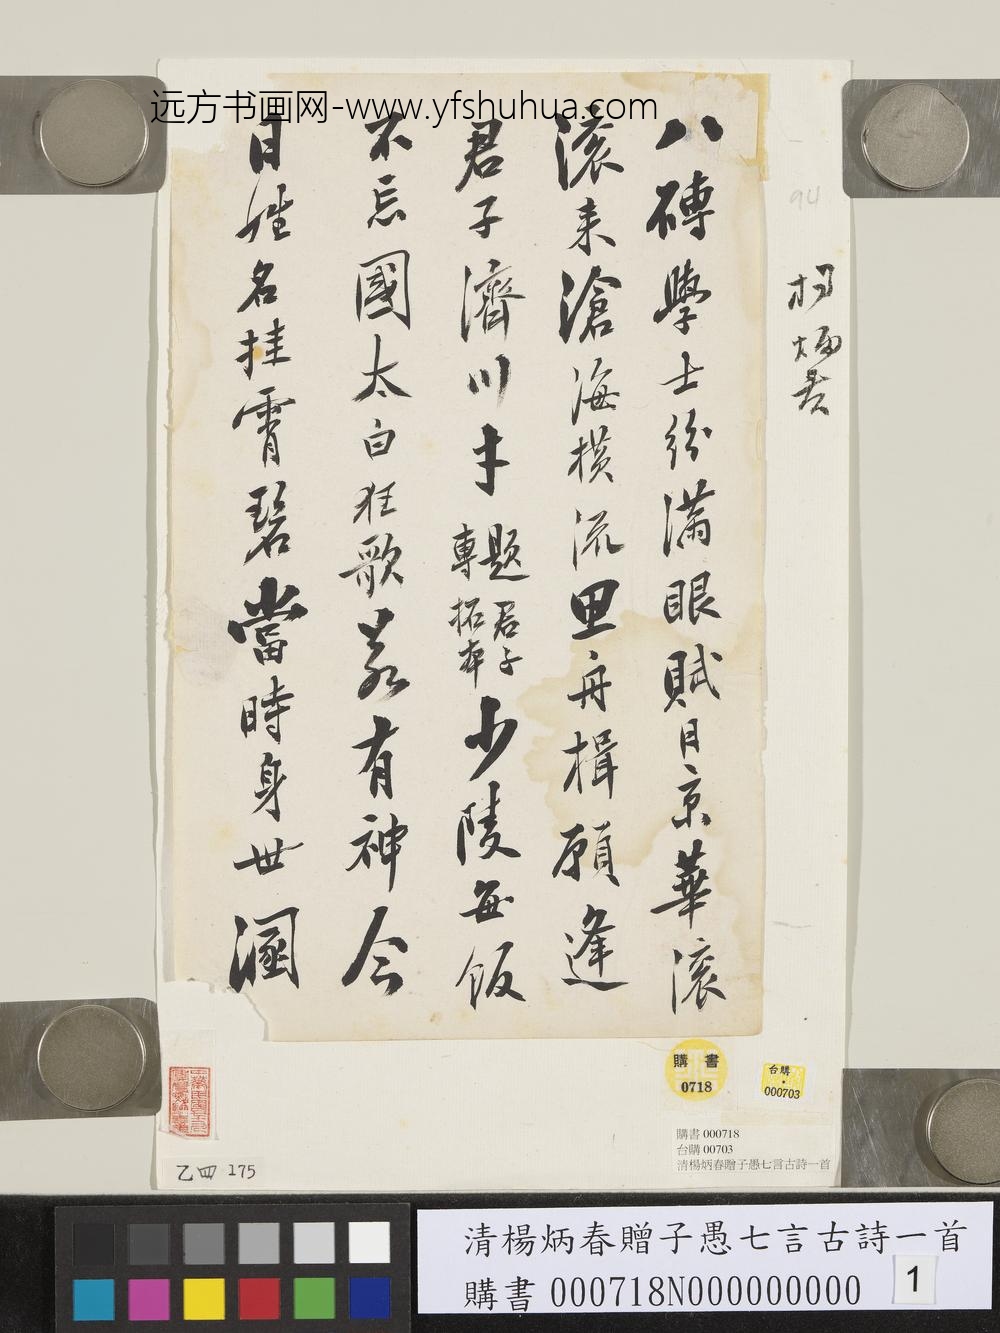 远方书画网-www.yfshuhua.com
八磚學士紛滿眼賦日京華滾
滾来滄海橫流思舟楫願逢
君子濟川才題君子專拓本少陵每飯
不忘國太白狂歌若有神今
日姓名挂霄碧當時身世溷
94
楊炳春
購書
0718
台購
000703
購書 000718
台購 00703
清楊炳春贈子愚七言古詩一首
乙四 175
清楊炳春贈子愚七言古詩一首
購書 000718N000000000
1